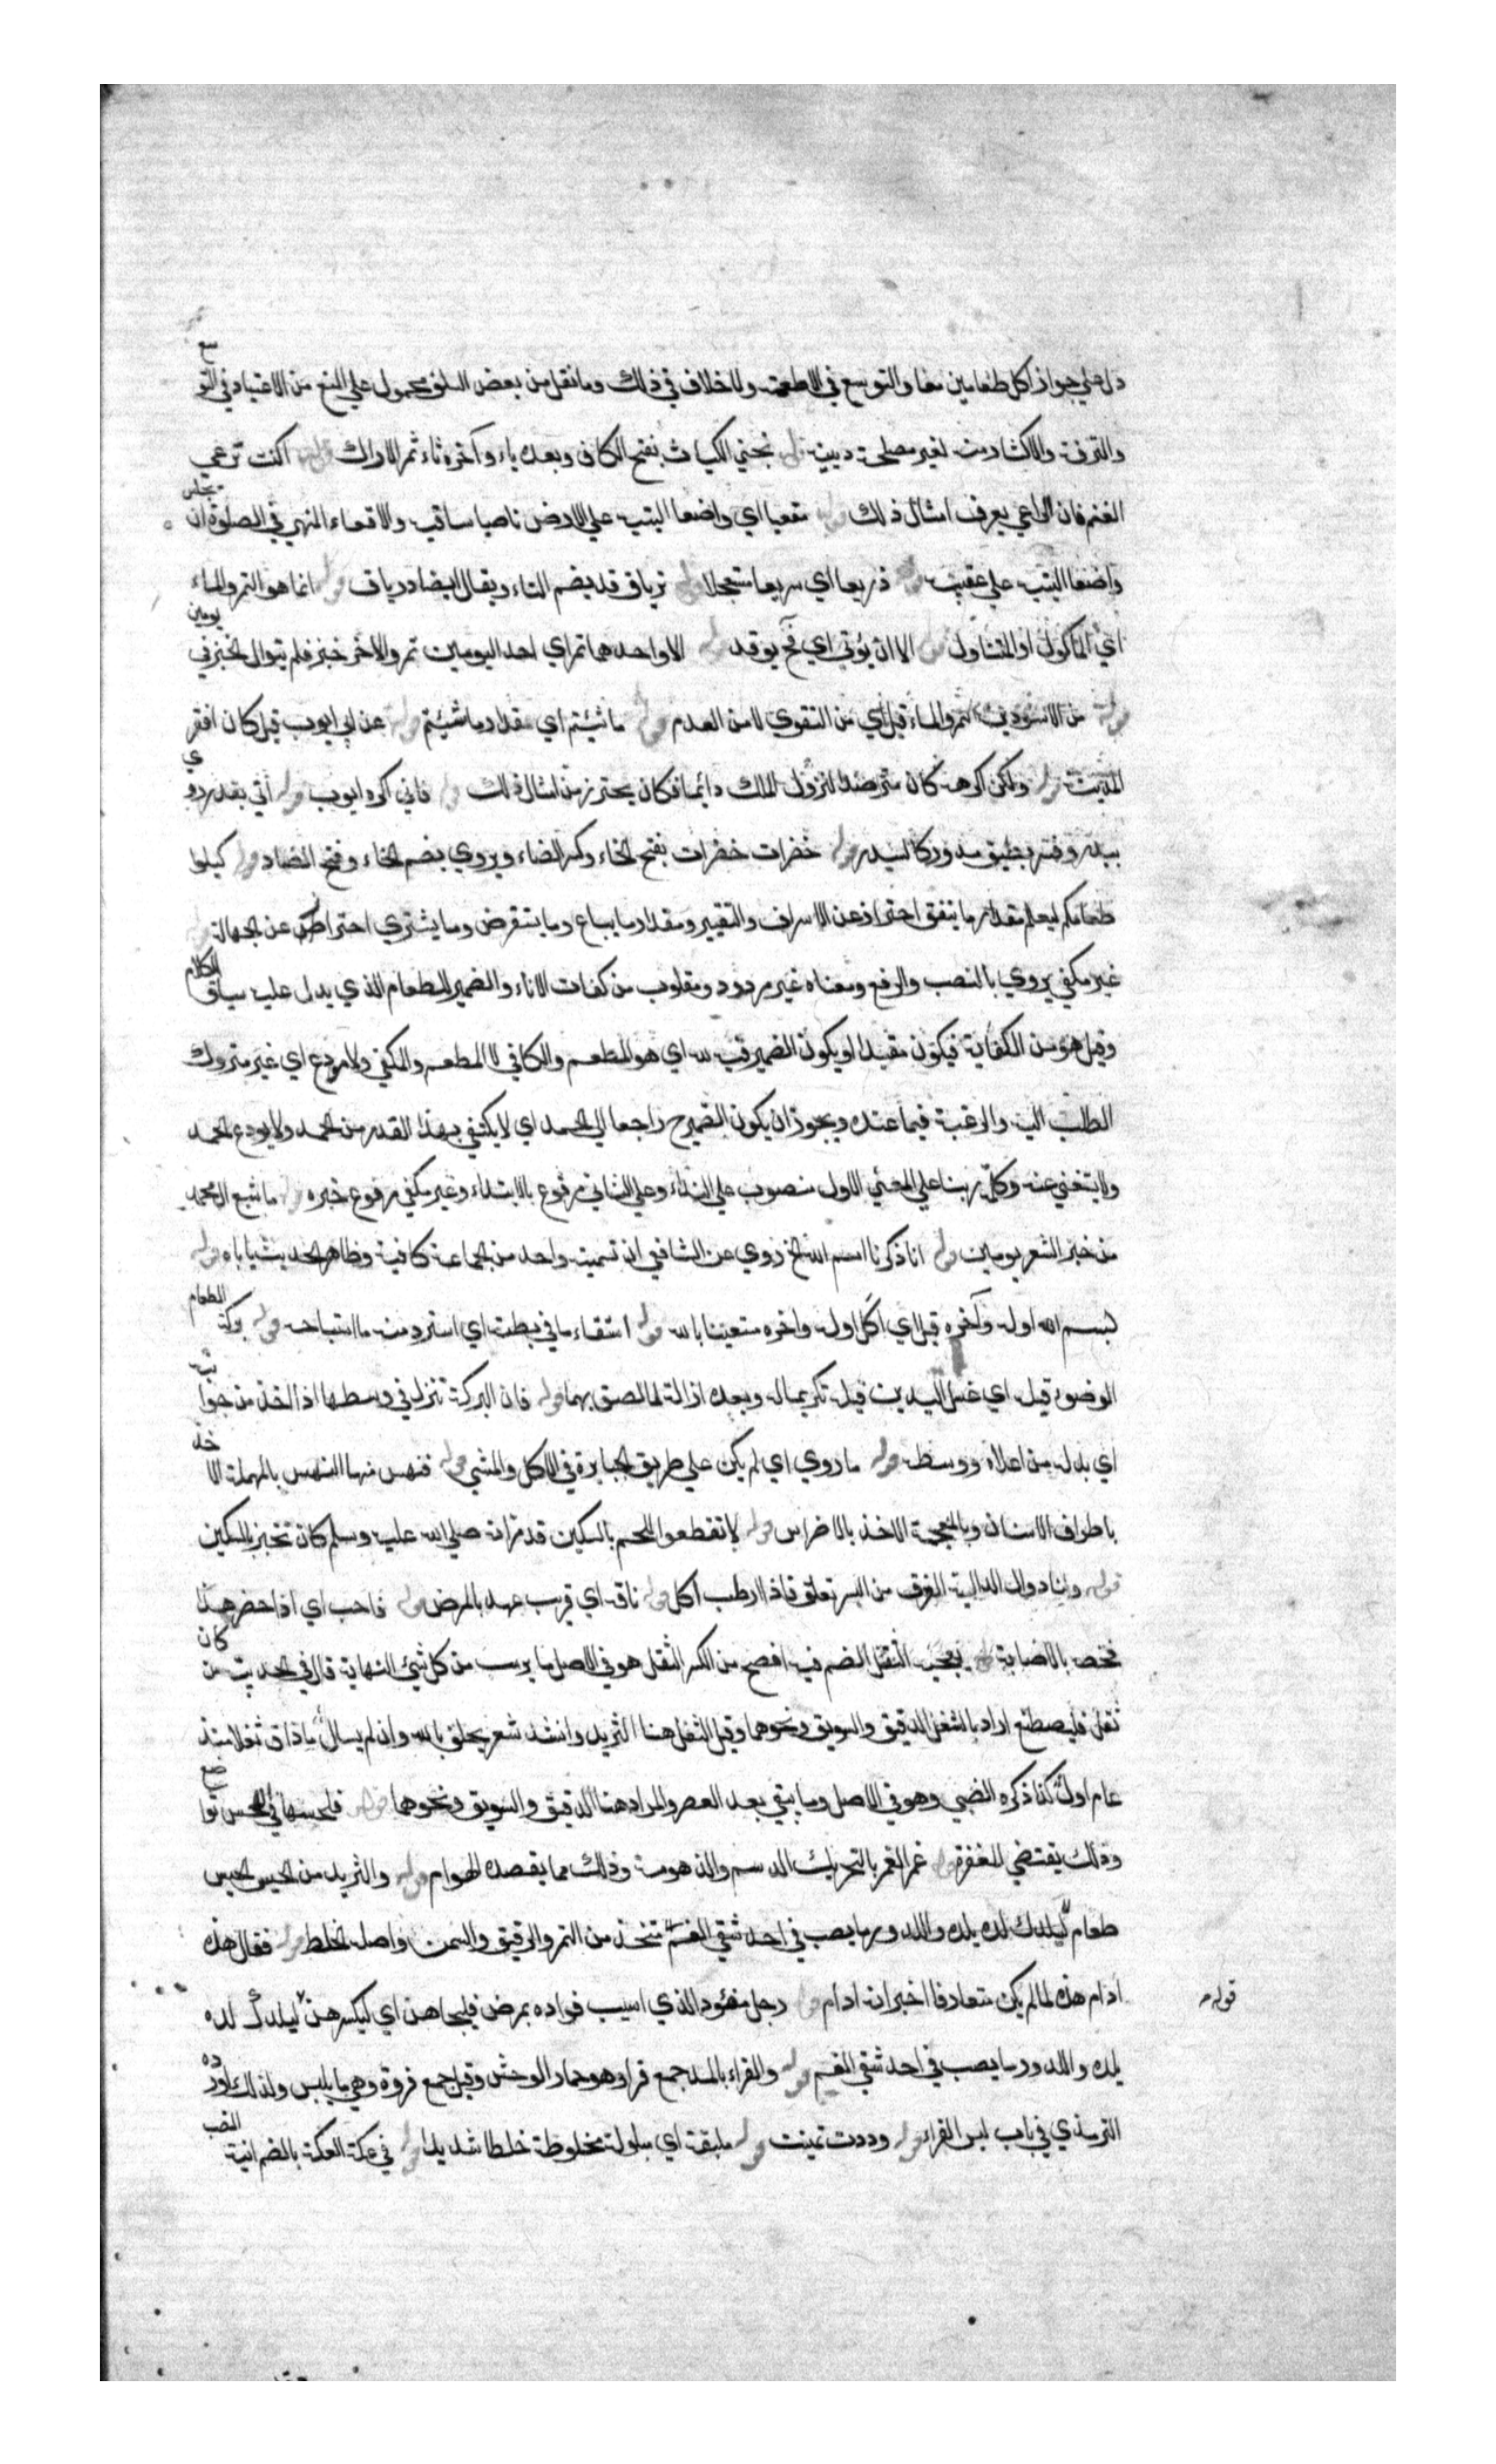 دل علي جواز اكل طعامين معا والتوسع في الاطعمة ولا خلاف في ذلك وما نقل من بعض السلف محمول علي المنع من الاعتياد في التوسع
والترفه والاكثار منه لغير مصلحة دينية قوله نجني الكباث بفتح الكاف وبعده باء وآخره ثاء ثمر الاراك قوله اكنت ترعي
الغنم فان الراعي يعرف امثال ذلك قوله مقعيا اي واضعا اليتيه علي الارض ناصبا ساقيه والاقعاء المنهي في الصلوة ان يجلس
واضعا اليتيه علي عقبيه قوله ذريعا اي سريعا مستعجلا قوله ترياق قد يضم التاء ويقال ايضا درياق قوله انما هو التمر والماء
اي الماكول او المتناول قوله الا ان يؤتي اي فح يوقد قوله الا واحدهما تمر اي احد اليومين تمر والاخر خبز فلم يتوال الخبز في يومين
قوله من الاسودين التمر والماء قيل اي من التقوي لا من العدم قوله ما شئتم اي مقدار ما شئتم قوله عن ابي ايوب قيل كان افقر
المدينة قوله ولكن اكرهه كان مترصدا لنزول الملك دائما فكان يحترز من امثال ذلك قوله فاني اكره ايوب قوله اتي بقدر روي
ببدر وفسر بطبق مدور كالبدر قوله خضرات خضرات بفتح الخاء وكسر الضاء ويروي بضم الخاء وفتح الضاد قوله كيلوا
طعامكم ليعلم مقدار ما ينفق احترازا عن الاسراف والتقتير ومقدار ما يباع وما يستقرض وما يشتري احترازا عن الجهالة قوله
غير مكفي يروي بالنصب والرفع ومعناه غير مردود ومقلوب من كفات الاناء والضمير للطعام الذي يدل عليه سياق الكلام
وقيل هو من الكفاية فيكون مقيدا او يكون الضمير فيه لله اي هو المطعم والكافي لا المطعم والمكفي ولا مودع اي غير متروك
الطلب اليه والرغبة فيما عنده ويجوز ان يكون الضمير ح راجعا الي الحمد اي لا يكتفي بهذا القدر من الحمد ولا يودع الحمد
ولا يستغني عنه وكل ربنا علي المعني الاول منصوب علي النداء وعلي الثاني مرفوع بالابتداء وغير مكفي مرفوع خبره قوله ما شبع ال محمد
من خبز الشعير يومين قوله انا ذكرنا اسم الله الخ روي عن الشافعي ان تسمية واحد من الجماعة كافية وظاهر الحديث ياباه قوله
بسم الله اوله وآخره قيل اي اكل اوله واخره مستعينا بالله قوله استقاء ما في بطنه اي استرد منه ما استباحه قوله بركة الطعام
الوضوء قبله اي غسل اليدين قبله تكريما له وبعده ازالة لما لصق بهما قوله فان البركة تنزل في وسطها اذا اخذ من جوانبه
اي بدله من اعلاه ووسطه قوله ما روي اي لم يكن علي طريق الجبابرة في الاكل والمشي قوله فنهس منها النهس بالمهملة الاخذ
باطراف الاسنان وبالمعجمة الاخذ بالاضراس قوله لا تقطعوا اللحم بالسكين قد مر انه صلي الله عليه وسلم كان يحتز بالسكين
قوله ولنا دوال الدالية الغرق من البسر تعلق فاذا ارطب اكل قوله ناقه اي قريب عهد بالمرض قوله فاحب اي اذا حضر هذا
فخص بالاصابة قوله يعجبه الثفل الضم فيه افصح من الكسر الثفل هو في الاصل ما يرسب من كل شيئ النهاية قال في الحديث من كان
ثفل فليصطنع اراد بالثفل الدقيق والسويق ونحوهما وقيل الثفل هنا الثريد وانشد شعر يحلف بالله وان لم يسال ما ذاق ثفلا منذ
عام اول كذا ذكره الضبي وهو في الاصل وما يبقي بعد العصر والمراد هنا الدقيق والسويق ونحوهما قوله فلحسها في اللحس تواضع
وذلك يقتضي المغفرة قوله غمر الغمر بالتحريك الدسم والذهومة وذلك مما يقصده الهوام قوله والثريد من الحيس الحيس
طعام ليلدك لده يلده واللدود ما يصب في احد شقي الفم متخذ من التمر والدقيق والسمن واصله الخلط قوله فقال هذه
ادام هذه لما لم يكن متعارفا اخبر انه ادام قوله رجل مفئود الذي اصيب فواده بمرض فليجاهن اي ليكسرهن ليلدك لده
يلده واللدود ما يصب في احد شقي الفم قوله والفراء بالمد جمع فراء وهو حمار الوحش وقيل جمع فروة وهي ما يلبس ولذلك اورده
الترمذي في باب لبس الفراء قوله وددت تمنيت قوله ملبقة اي مبلولة مخلوطة خلطا شديدا قوله في عكة العكة بالضم انية الضب
قوله